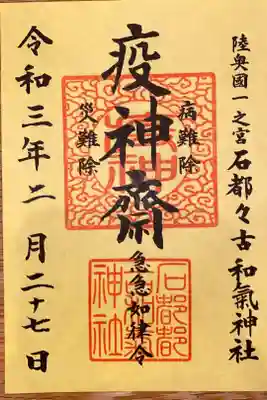 陸奥國一之宮石都々古和氣神社
疫神齋
病難除
災難除
急急如律令
石都都
神社
令和三年二月二十七日